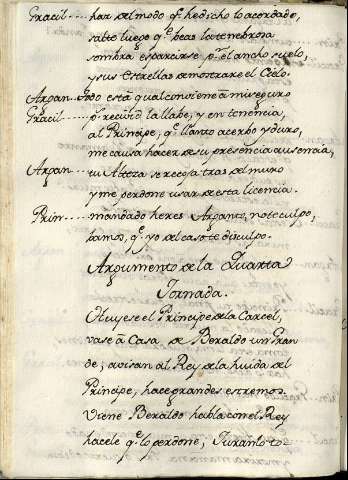 Gracil.... haz del modo q̃. he dicho lo acordado,
salte luego q̃. beas la tenebrosa
sombra esparcirse pr. el ancho suelo,
y sus Estrellas demostrare el Cielo.
Arpan... todo està qual conviene à mi seguro
Gracil.... recivid la llabe, y en tenencia,
al Principe, q̃. llanto acerbo y duro,
me causa hacer de su presencia ausencia,
Arpan... tu Alteza se recoja tras del muro
y me perdone usar de esta licencia.
Prin.... mandado heres Arpanto, no te culpo,
bamos, q̃. yo del caso te disculpo.
Argumento de la Quarta
Jornada.
Huyese el Principe de la Carcel,
vase à Casa, de Beraldo un Gran
de; avisan al Rey de la huida del
Principe, hace grandes estremos.
Viene Beraldo habla con el Rey
hacele q̃. lo perdone; Juranlo to-